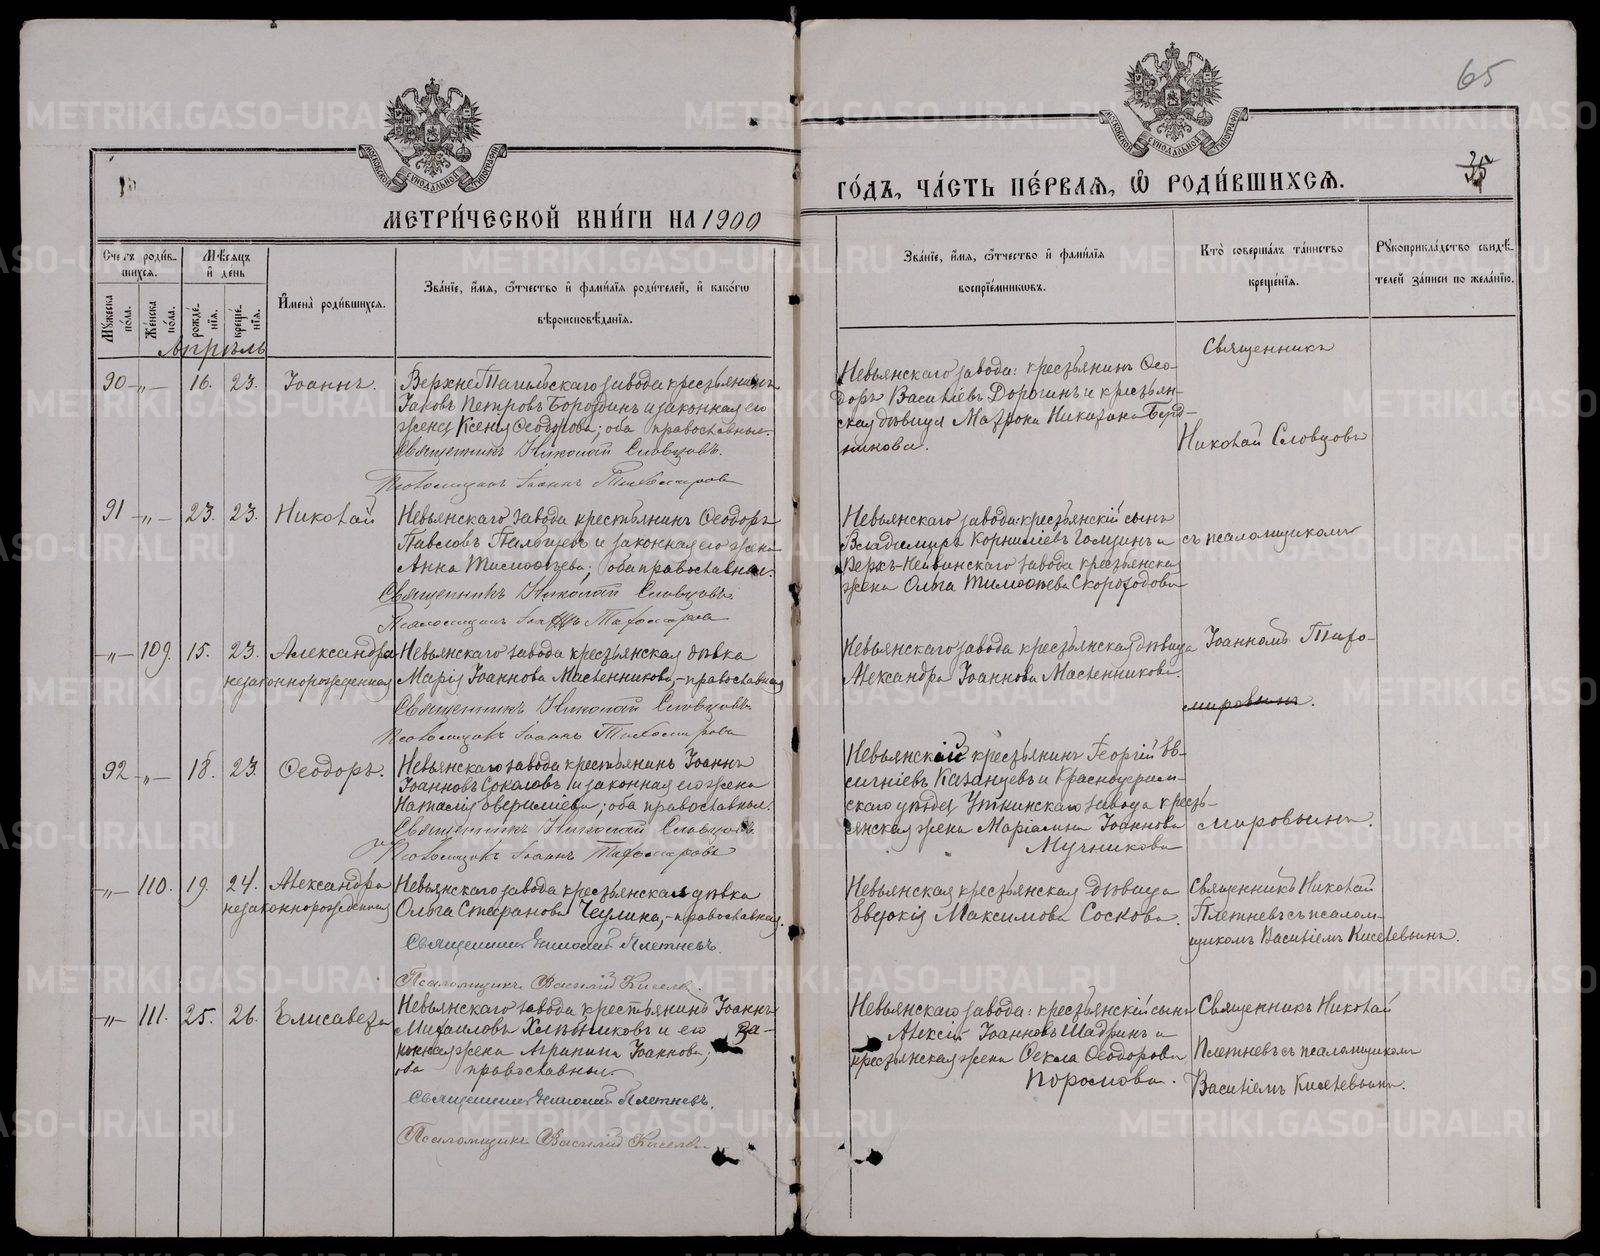 65
35
МЕТРИ́ЧЕСКОЙ КНИ́ГИ НА 1900
ГО́ДЪ, ЧА́СТЬ ПЕ́РВАЯ, Ѡ РОДИ́ВШИХСЯ.
Сче́тъ роди́в-
шихся.
Мѣ́сяцъ
и҆ де́нь
Мꙋ́жеска
по́ла.
Же́нска
по́ла.
рожде́-
нїя.
креще́-
нїя.
И҆мена̀ роди́вшихся.
Зва́нїе, и҆́мя, ѻ҆́тчество и҆ фами́лїя роди́телей, и҆ како́гѡ
вѣроисповѣ́данїя.
Зва́нїе, и҆́мя, ѻ҆́тчество и҆ фами́лїя
воспрїе́мникѡвъ.
Кто̀ соверша́лъ та́инство
креще́нїя.
Рꙋкоприкла́дство свидѣ́-
телей за́писи по жела́нїю.
Апрѣль
90 -„- 16. 23. Іоаннъ.
Верхне Тагильскаго завода крестьянинъ
Іаковъ Петровъ Бороздинъ и законная его
жена Ксенія Ѳеодорова; оба православные.
Священникъ Николай Словцовъ.
Псаломщикъ Іоаннъ Тихомировъ
Невьянскаго завода: крестьянинъ Ѳео-
доръ Василіевъ Дорогинъ и крестьян-
ская дѣвица Матрона
никова.
Священникъ
Николай Словцовъ
91 -„- 23. 23. Николай
Невьянскаго завода крестьянинъ Ѳеодоръ
Павловъ и законная его жена
Анна Тимоѳѣева; оба православные.
Священникъ Николай Словцовъ.
Псаломщикъ Іоаннъ Тихомировъ
Невьянскаго завода: крестьянскій сынъ
Владимиръ Корниліевъ и
Верхъ-Нейвинскаго завода крестьянская
жена Ольга Тимоѳѣева Скороходова
съ псаломщикомъ
-„- 109. 15. 23. Александра
незаконнорожденная
Невьянскаго завода крестьянская дѣвка
Марія Іоаннова Масленникова, - православная
Священникъ Николай Словцовъ
Псаломщикъ Іоаннъ Тихомировъ
Невьянскаго завода крестьянская дѣвица
Александра Іоаннова Масленникова.
Іоанномъ Тихо-
мировымъ.
92 -„- 18. 23. Ѳеодоръ.
Невьянскаго завода крестьянинъ Іоаннъ
Іоанновъ Соколовъ и законная его жена
Настасія; оба православные.
Священникъ Николай Словцовъ
Псаломщикъ Іоаннъ Тихомировъ
Невьянскій крестьянинъ Георгій Ев-
сигніевъ Казанцевъ и Красноуфим-
скаго уѣзда Уткинскаго завода кресть-
янская жена Маріамна Іоаннова
Мучникова
мировымъ.
-„- 110. 19. 24. Александра
незаконнорожденная
Невьянскаго завода крестьянская дѣвка
Ольга Стефанова, - православная.
Священникъ Николай Плетневъ.
Псаломщикъ Василій Киселевъ.
Невьянская крестьянская дѣвица
Евдокія Максимова Соскова.
Священникъ Николай
Плетневъ съ псалом-
щикомъ Василіемъ Киселевымъ.
-„- 111. 25. 26. Елисавета
Невьянскаго завода крестьянинъ Іоаннъ
Михаиловъ и его за-
конная жена Агрипина Іоаннова;
оба православные.
Священникъ Николай Плетневъ.
Псаломщикъ Василій Киселевъ.
Невьянскаго завода: крестьянскій сынъ
Алексій Іоанновъ Шадринъ и
крестьянская жена Ѳекла Ѳеодорова
Священникъ Николай
Плетневъ съ псаломщикомъ
Василіемъ Киселевымъ.
METRIKI.GASO-URAL.RU